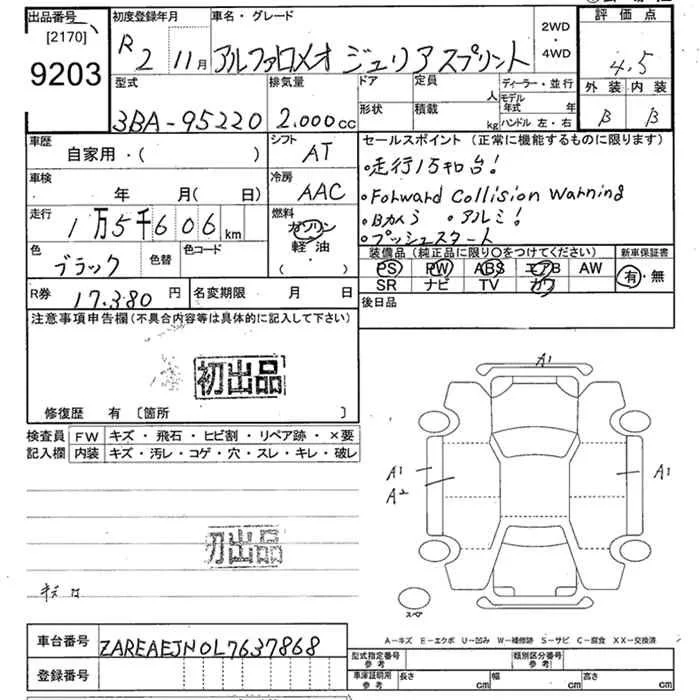 出品番号
[2170]
9203
初度登録年月
R2 11月
車名・グレード
アルファロメオ ジュリアスプリント
2WD
・
4WD
評価点
4.5
外装 内装
B B
型式
3BA-95220
排気量
2.000cc
ドア
形状
定員
人
積載
kg
ディーラー・並行
モデル年式 年
ハンドル 左・右
車歴
自家用・( )
シフト
AT
セールスポイント(正常に機能するものに限ります)
・走行1万5キロ台!
・Forward Collision Warning
・Bカメラ ・アルミ!
・プッシュスタート
車検
年 月( 日)
冷房
AAC
走行
1万5千606km
燃料
ガソリン
軽油・
( )
色
ブラック
色替
色コード
装備品(純正品に限り○をつけてください)
PS PW ABS エアB AW
SR ナビ TV カワ
新車保証書
有・無
R券
17.380円
名変期限 月 日
後日品
注意事項申告欄(不具合内容等は具体的に記入して下さい)
初出品
修復歴 有 〔箇所 〕
検査員記入欄
FW キズ・飛石・ヒビ割・リペア跡・×要
内装 キズ・汚レ・コゲ・穴・スレ・キレ・破レ
A1
A1
A2
A1
初出品
スペア
A-キズ E-エクボ U-凹み W-補修跡 S-サビ C-腐食 XX-交換済
車台番号
ZAREAEJN0L7637868
登録番号
型式指定番号
参考
類別区分番号
参考
車庫証明用
参考
長さ cm
幅 cm
高さ cm